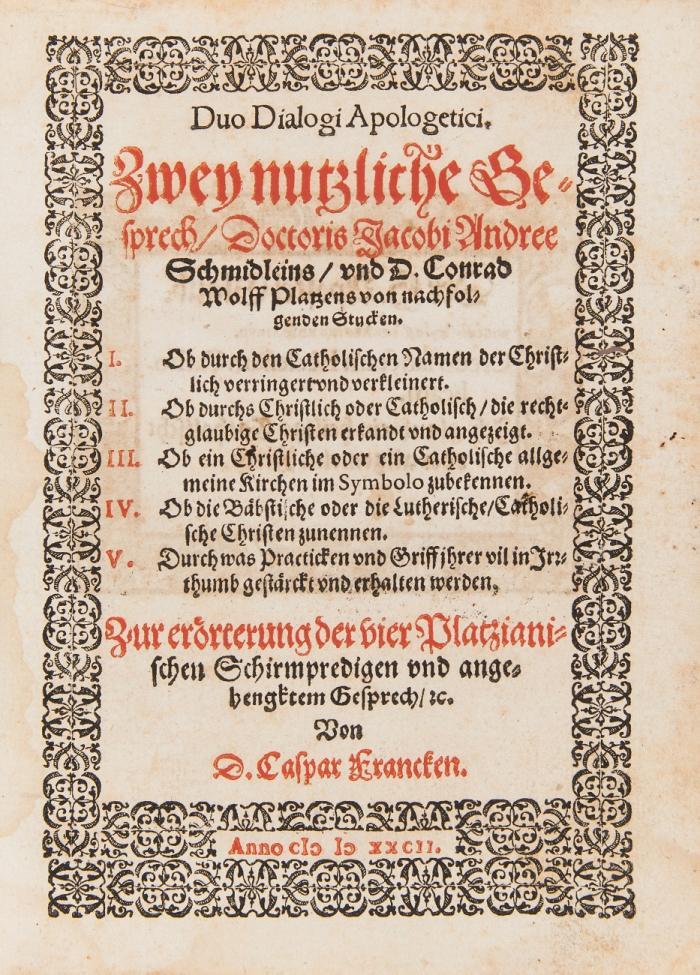 Duo Dialogi Apologetici.
Zwey nutzliche Ge-
sprech/ Doctoris Jacobi Andree
Schmidleins/ vnd D. Conrad
Wolff Platzens von nachfol-
genden Stucken.
I. Ob durch den Catholischen Namen der Christ-
lich verringert vnd verkleinert.
II. Ob durchs Christlich oder Catholisch/ die recht-
glaubige Christen erkandt vnd angezeigt.
III. Ob ein Christliche oder ein Catholische allge-
meine Kirchen im Symbolo zubekennen.
IV. Ob die Bäbstische oder die Lutherische/ Catholi-
sche Christen zunennen.
V. Durch was Practicken vnd Griff jhrer vil in Irr-
thumb gestärckt vnd erhalten werden.
Zur erörterung der vier Platziani-
schen Schirmpredigen vnd ange-
hengktem Gesprech/ ꝛc.
Von
D. Caspar Francken.
Anno cIↄ Iↄ xxcII.